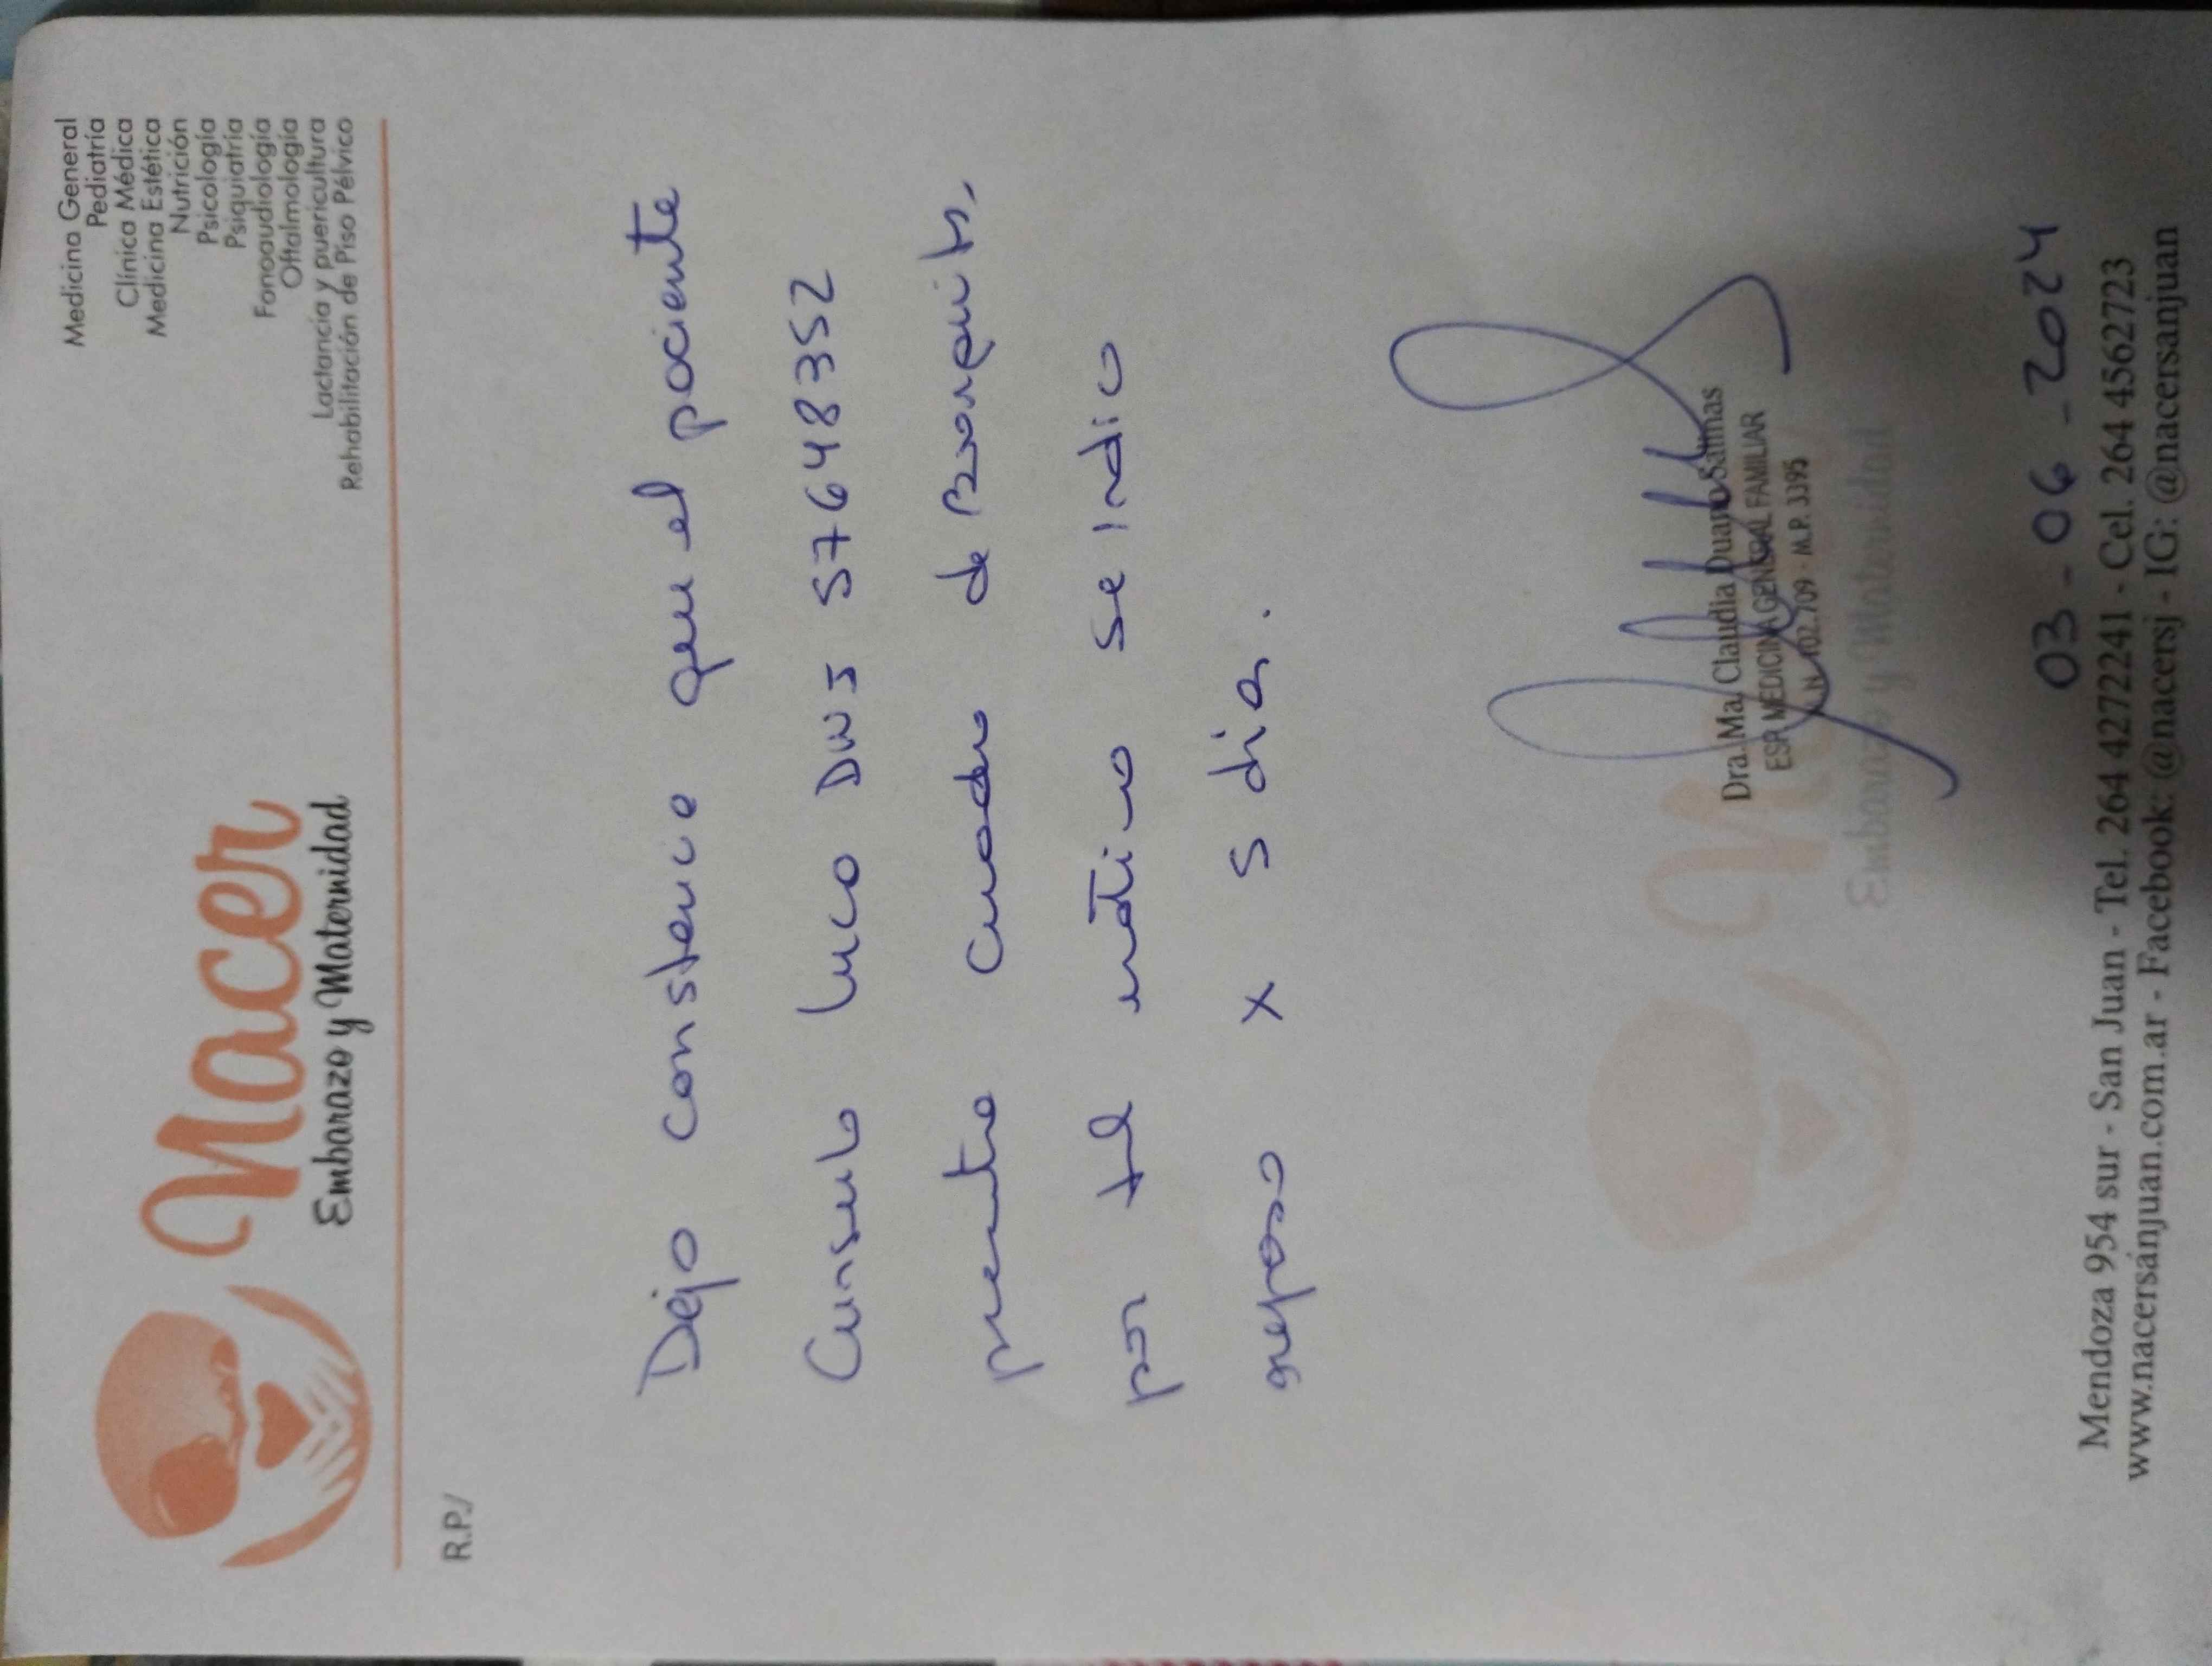 Nacer
Embarazo y Maternidad
Medicina General
Pediatría
Clínica Médica
Medicina Estética
Nutrición
Psicología
Psiquiatría
Fonoaudiología
Oftalmología
Lactancia y puericultura
Rehabilitación de Piso Pélvico
R.P./
Dejo constencia que el paciente
Luco 57648352
presenta cuadro de Bronquitis,
por tal motivo se indico
reposo x 5 dias.
Dra. Ma. Claudia Salinas
ESP. MEDICINA GENERAL FAMILIAR
M.P. 3395
Embarazo y Maternidad
03-06-2024
Mendoza 954 sur - San Juan - Tel. 264 4272241 - Cel. 264 4562723
www.nacersanjuan.com.ar - Facebook: @nacersj - IG: @nacersanjuan